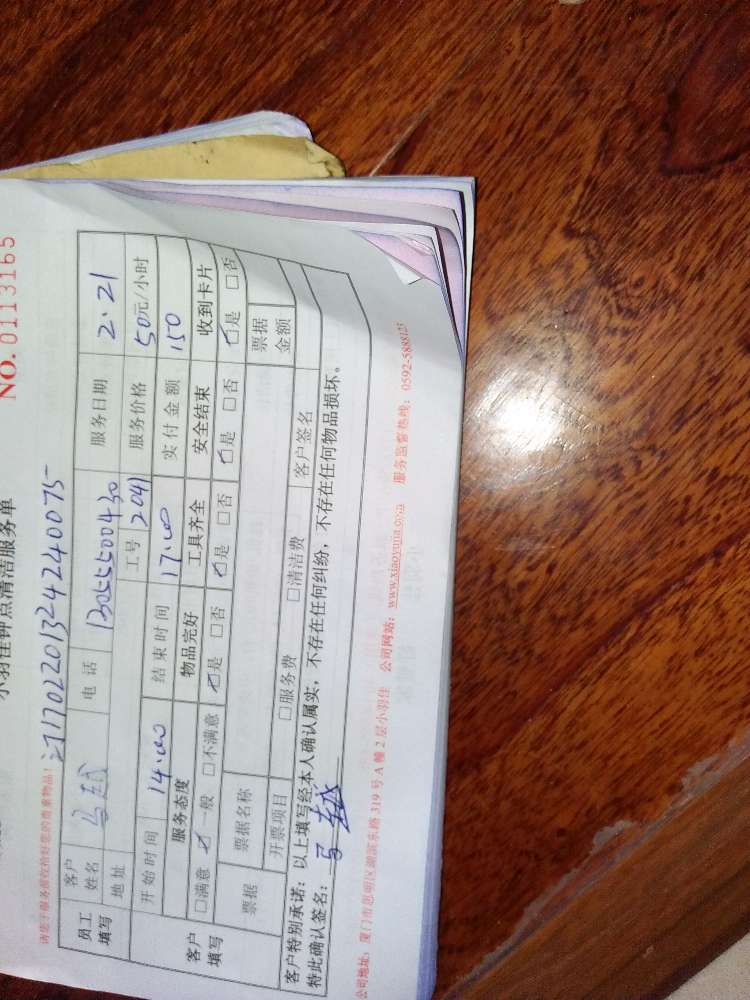 NO. 0113165
小羽佳钟点清洁服务单
请您于服务前收拾好您的贵重物品!
员工填写 客户姓名 马越 电话 13055500430 服务日期 2.21
地址 工号 2041 服务价格 50元/小时
客户填写 开始时间 14.00 结束时间 17.00 实付金额 150
服务态度 物品完好 工具齐全 安全结束 收到卡片
□满意 □一般 □不满意 □是 □否 □是 □否 □是 □否 □是 □否
票据 票据名称 票据金额
开票项目 □服务费 □清洁费 客户签名
客户特别承诺:以上填写经本人确认属实,不存在任何纠纷,不存在任何物品损坏。
特此确认签名:马越
公司地址:厦门市思明区湖滨东路319号A幢2层小羽佳 公司网站:www.xiaoyujia.com 服务监督热线:0592-5888127